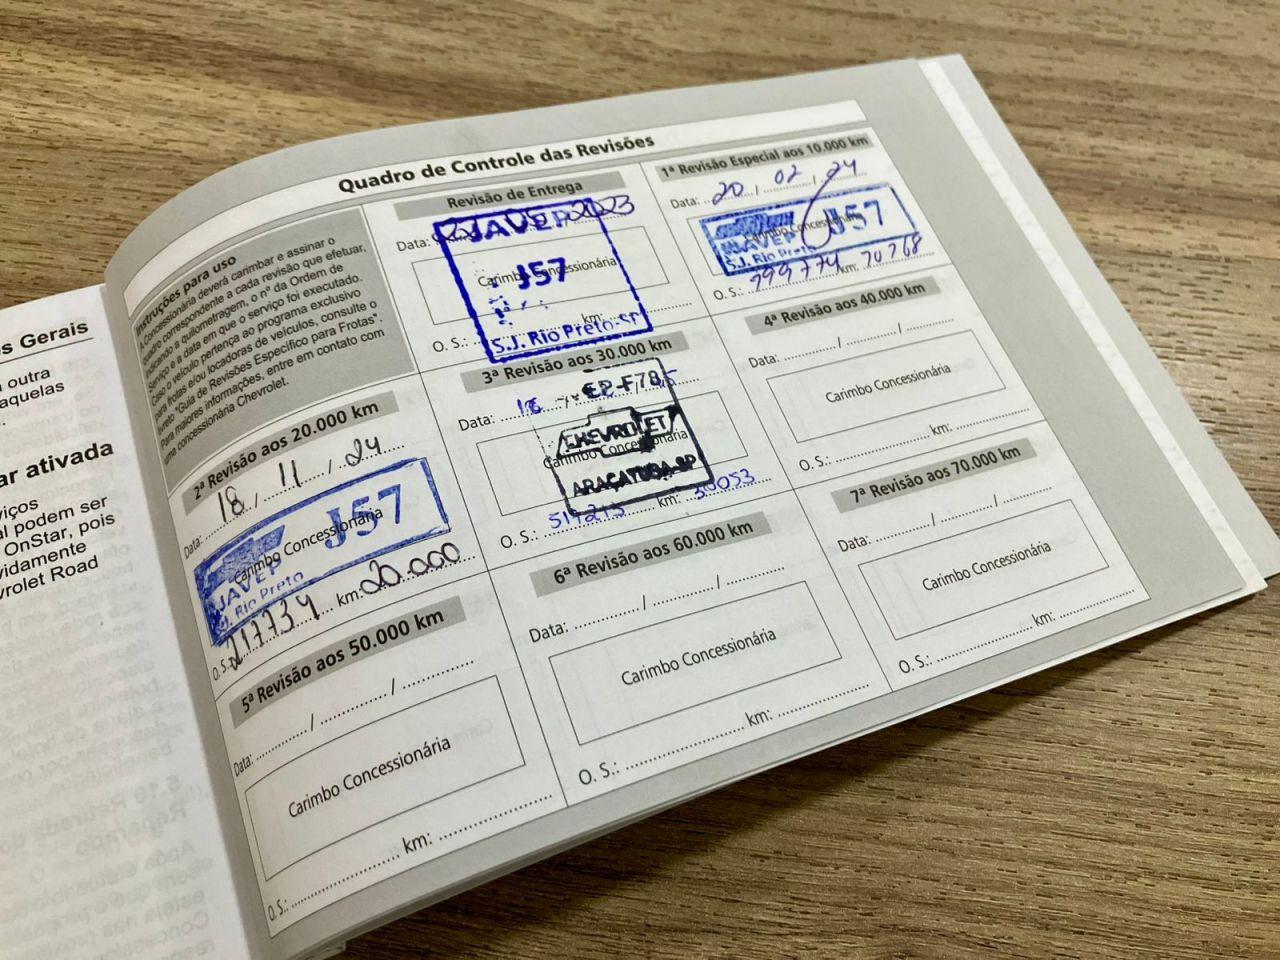 s Gerais
outra
aquelas
ar ativada
viços
al podem ser
OnStar, pois
vidamente
vrolet Road
Quadro de Controle das Revisões
Instruções para uso
A Concessionária deverá carimbar e assinar o
quadro correspondente a cada revisão que efetuar,
indicando a quilometragem, o nº da Ordem de
Serviço e a data em que o serviço foi executado.
Caso o veículo pertença ao programa exclusivo
para frotas e/ou locadoras de veículos, consulte o
livreto "Guia de Revisões Específico para Frotas".
Para maiores informações, entre em contato com
uma concessionária Chevrolet.
Revisão de Entrega
Data: 2023
JAVEP
Carimbo Concessionária
J57
km:
O. S.:
S.J. Rio Preto-SP
1ª Revisão Especial aos 10.000 km
Data: 20 / 02 / 24
Carimbo Concessionária
JAVEP J57
S.J. Rio Preto
O. S.: 199774 km: 10768
2ª Revisão aos 20.000 km
Data: 18 / 11 / 24
Carimbo Concessionária
J57
JAVEP
S.J. Rio Preto
O. S.: 217734 km: 20.000
3ª Revisão aos 30.000 km
Data:
EP-F78
CHEVROLET
Carimbo Concessionária
ARAÇATUBA-SP
O. S.: km: 30053
4ª Revisão aos 40.000 km
Data: / /
Carimbo Concessionária
O. S.: km:
5ª Revisão aos 50.000 km
Data: / /
Carimbo Concessionária
O. S.: km:
6ª Revisão aos 60.000 km
Data: / /
Carimbo Concessionária
O. S.: km:
7ª Revisão aos 70.000 km
Data: / /
Carimbo Concessionária
O. S.: km: